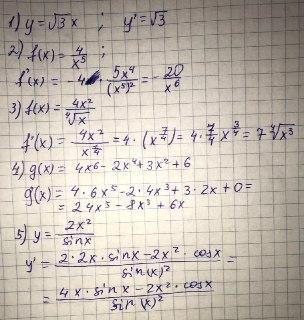 1) y = √3 x ; y' = √3
2) f(x) = 4/x⁵ ;
f'(x) = -4 · 5x⁴/(x⁵)² = - 20/x⁶
3) f(x) = 4x²/⁴√x
f'(x) = 4x²/x^(1/4) = 4 · (x^(7/4)) = 4 · 7/4 x^(3/4) = 7 ⁴√x³
4) g(x) = 4x⁶ - 2x⁴ + 3x² + 6
g'(x) = 4 · 6x⁵ - 2 · 4x³ + 3 · 2x + 0 =
= 24x⁵ - 8x³ + 6x
5) y = 2x²/sinx
y' = 2 · 2x · sinx - 2x² · cosx/sin(x)² =
= 4x · sinx - 2x² · cosx/sin(x)²